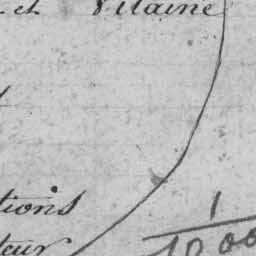 et Vilaine
tions
teur
1
1000